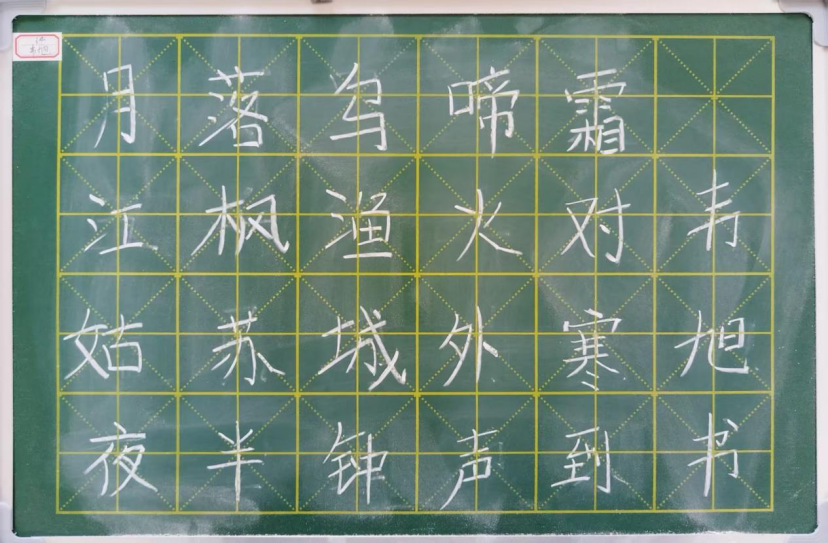 月落乌啼霜
江枫渔火对韦
姑苏城外寒旭
夜半钟声到书